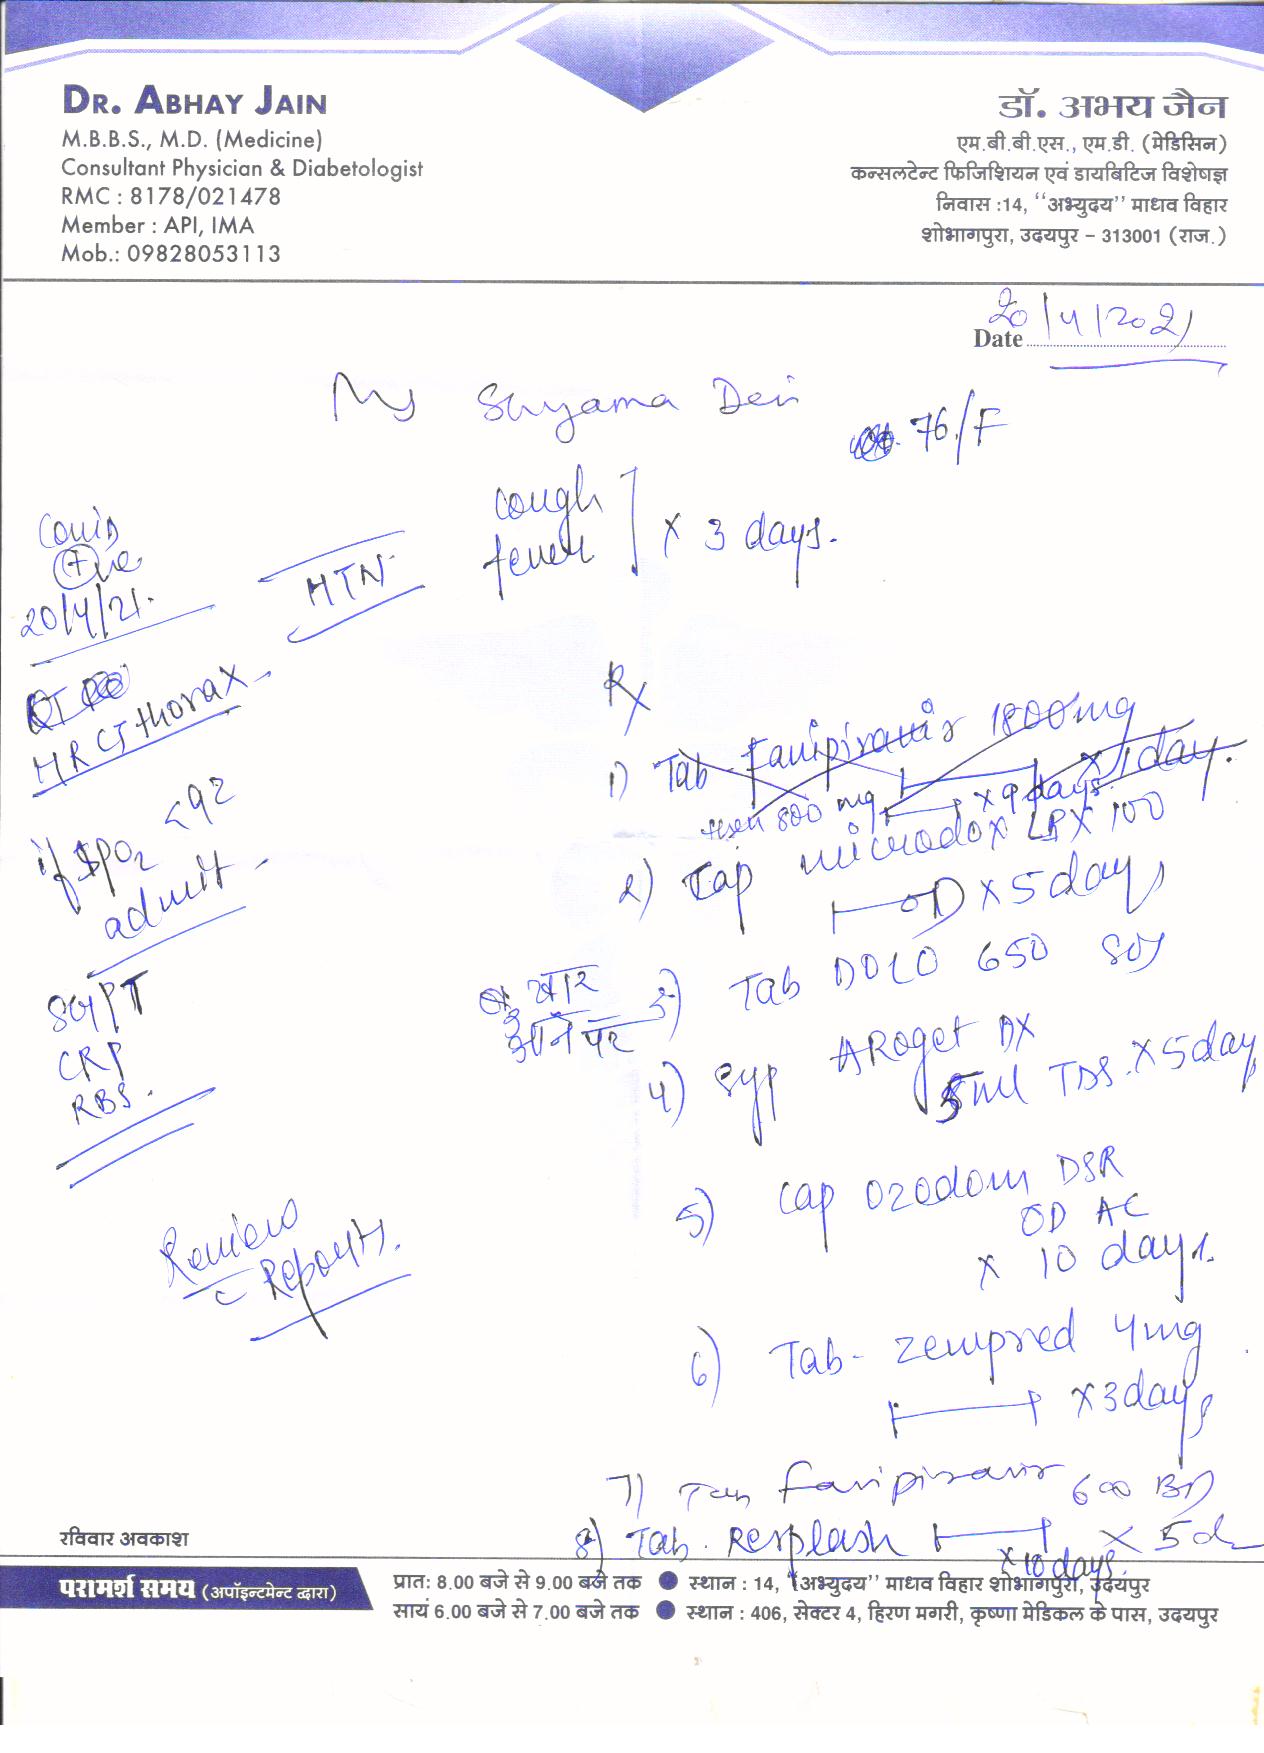 DR. ABHAY JAIN
M.B.B.S., M.D. (Medicine)
Consultant Physician & Diabetologist
RMC : 8178/021478
Member : API, IMA
Mob.: 09828053113
डॉ. अभय जैन
एम.बी.बी.एस., एम.डी. (मेडिसिन)
कन्सलटेन्ट फिजिशियन एवं डायबिटिज विशेषज्ञ
निवास :14, "अभ्युदय" माधव विहार
शोभागपुरा, उदयपुर - 313001 (राज.)
Date 20/4/2021
Ms Shyama Devi
76/F
cough
fever ] x 3 days.
Covid
+ve
20/4/21.
HTN
HRCT thorax
if SPO2 <92
admit
SGPT
CRP
RBS.
Review
c Reports.
Rx
1) Tab Favipiravir 1800mg
x 1day.
then 800 mg x 9 days
2) Cap microdox LBX 100
OD x 5 days
3) Tab DOLO 650 SOS
बुखार
आने पर
4) Syp ARoget DX
5ml TDS x 5 days
5) Cap Ozodom DSR
OD AC
x 10 days.
6) Tab- zempred 4mg
x 3 days
7) Tab Favipiravir 600 BD
x 5 d
8) Tab. Resplash
x 10 days.
रविवार अवकाश
परामर्श समय (अपॉइन्टमेन्ट द्वारा)
प्रात: 8.00 बजे से 9.00 बजे तक ● स्थान : 14, "अभ्युदय" माधव विहार शोभागपुरा, उदयपुर
सायं 6.00 बजे से 7.00 बजे तक ● स्थान : 406, सेक्टर 4, हिरण मगरी, कृष्णा मेडिकल के पास, उदयपुर